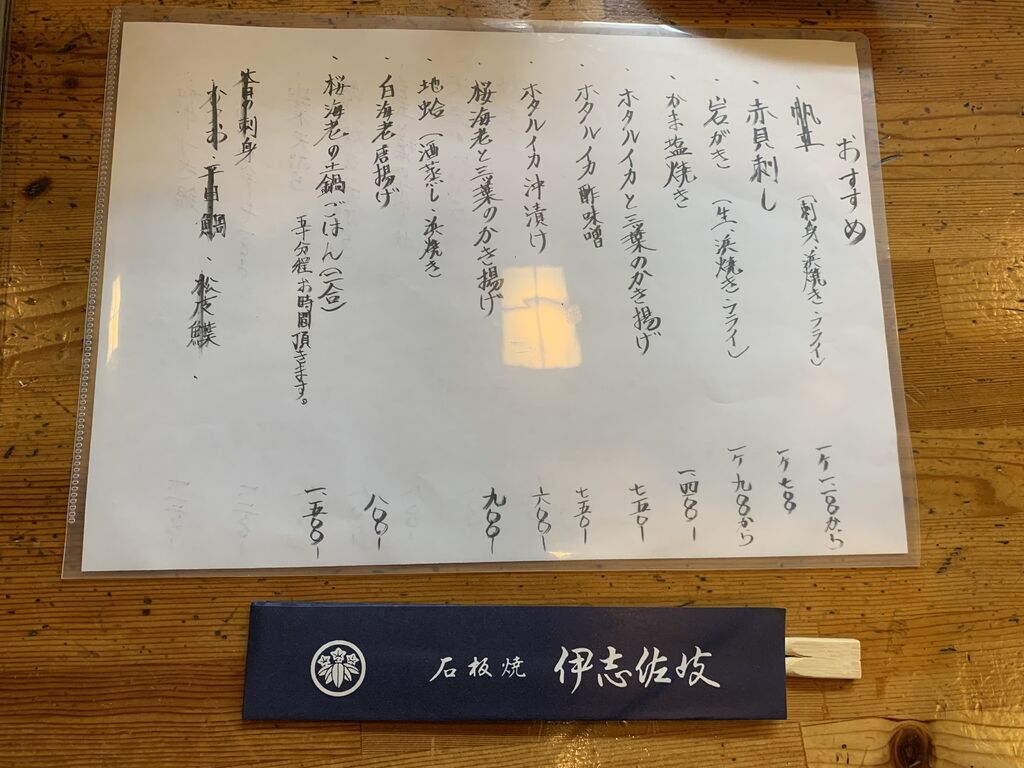 おすすめ
・帆立（刺身・浜焼き・フライ） 一ケ一、二〇〇から
・赤貝刺し 一ケ七〇〇
・岩がき（生、浜焼き・フライ） 一ケ九〇〇から
・かま塩焼き 一、四〇〇-
・ホタルイカと三葉のかき揚げ 七五〇-
・ホタルイカ酢味噌 七五〇-
・ホタルイカ沖漬け 六〇〇-
・桜海老と三葉のかき揚げ 九〇〇-
・地蛤（酒蒸し・浜焼き）
・白海老唐揚げ 八〇〇-
・桜海老の土鍋ごはん（二合） 一、五〇〇-
五十分程お時間頂きます。
本日の刺身
鯛・松皮鰈・
石板焼 伊志佐岐